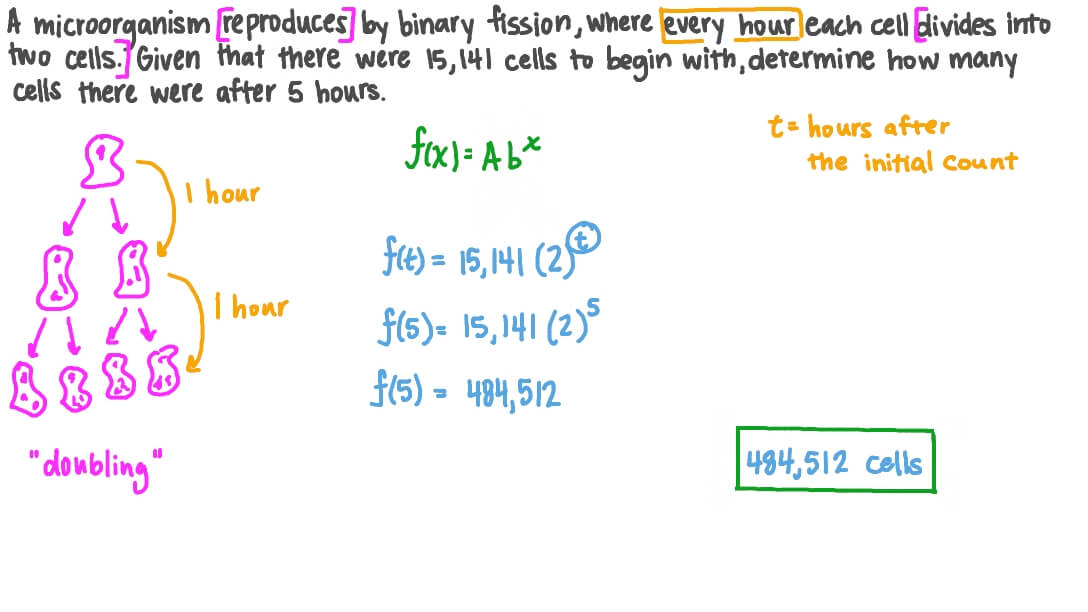 A microorganism [reproduces] by binary fission, where every hour each cell [divides into
two cells.] Given that there were 15,141 cells to begin with, determine how many
cells there were after 5 hours.
f(x) = Ab^x
t = hours after
the initial count
1 hour
f(t) = 15,141 (2)^t
1 hour
f(5) = 15,141 (2)^5
f(5) = 484,512
"doubling"
484,512 cells